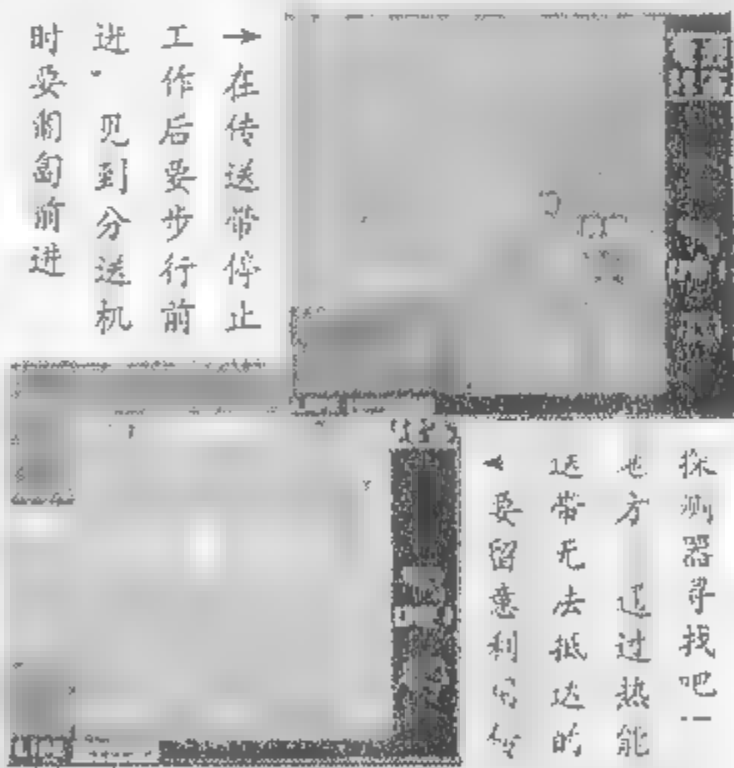 →在传送带停止
工作后要步行前
进。见到分送机
时要匍匐前进
◄要留意利用传
送带无法抵达的
地方 透过热能
探测器寻找吧！